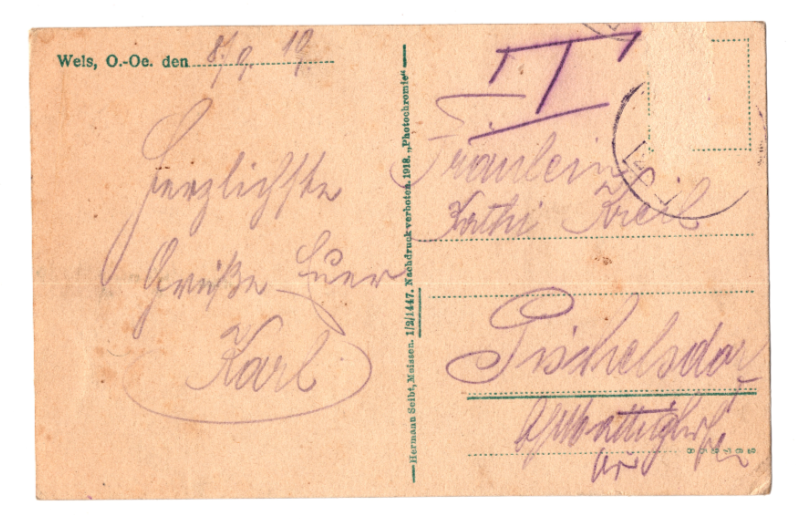 Wels, O.-Oe. den 8/9. 19.
Herzlichste
Grüße Euer
Karl
Hermann Seibt, Meissen. 1/2/1447. Nachdruck verboten. 1918. „Photochromie“
Fräulein
Kathi Kreil
Pischelsdorf